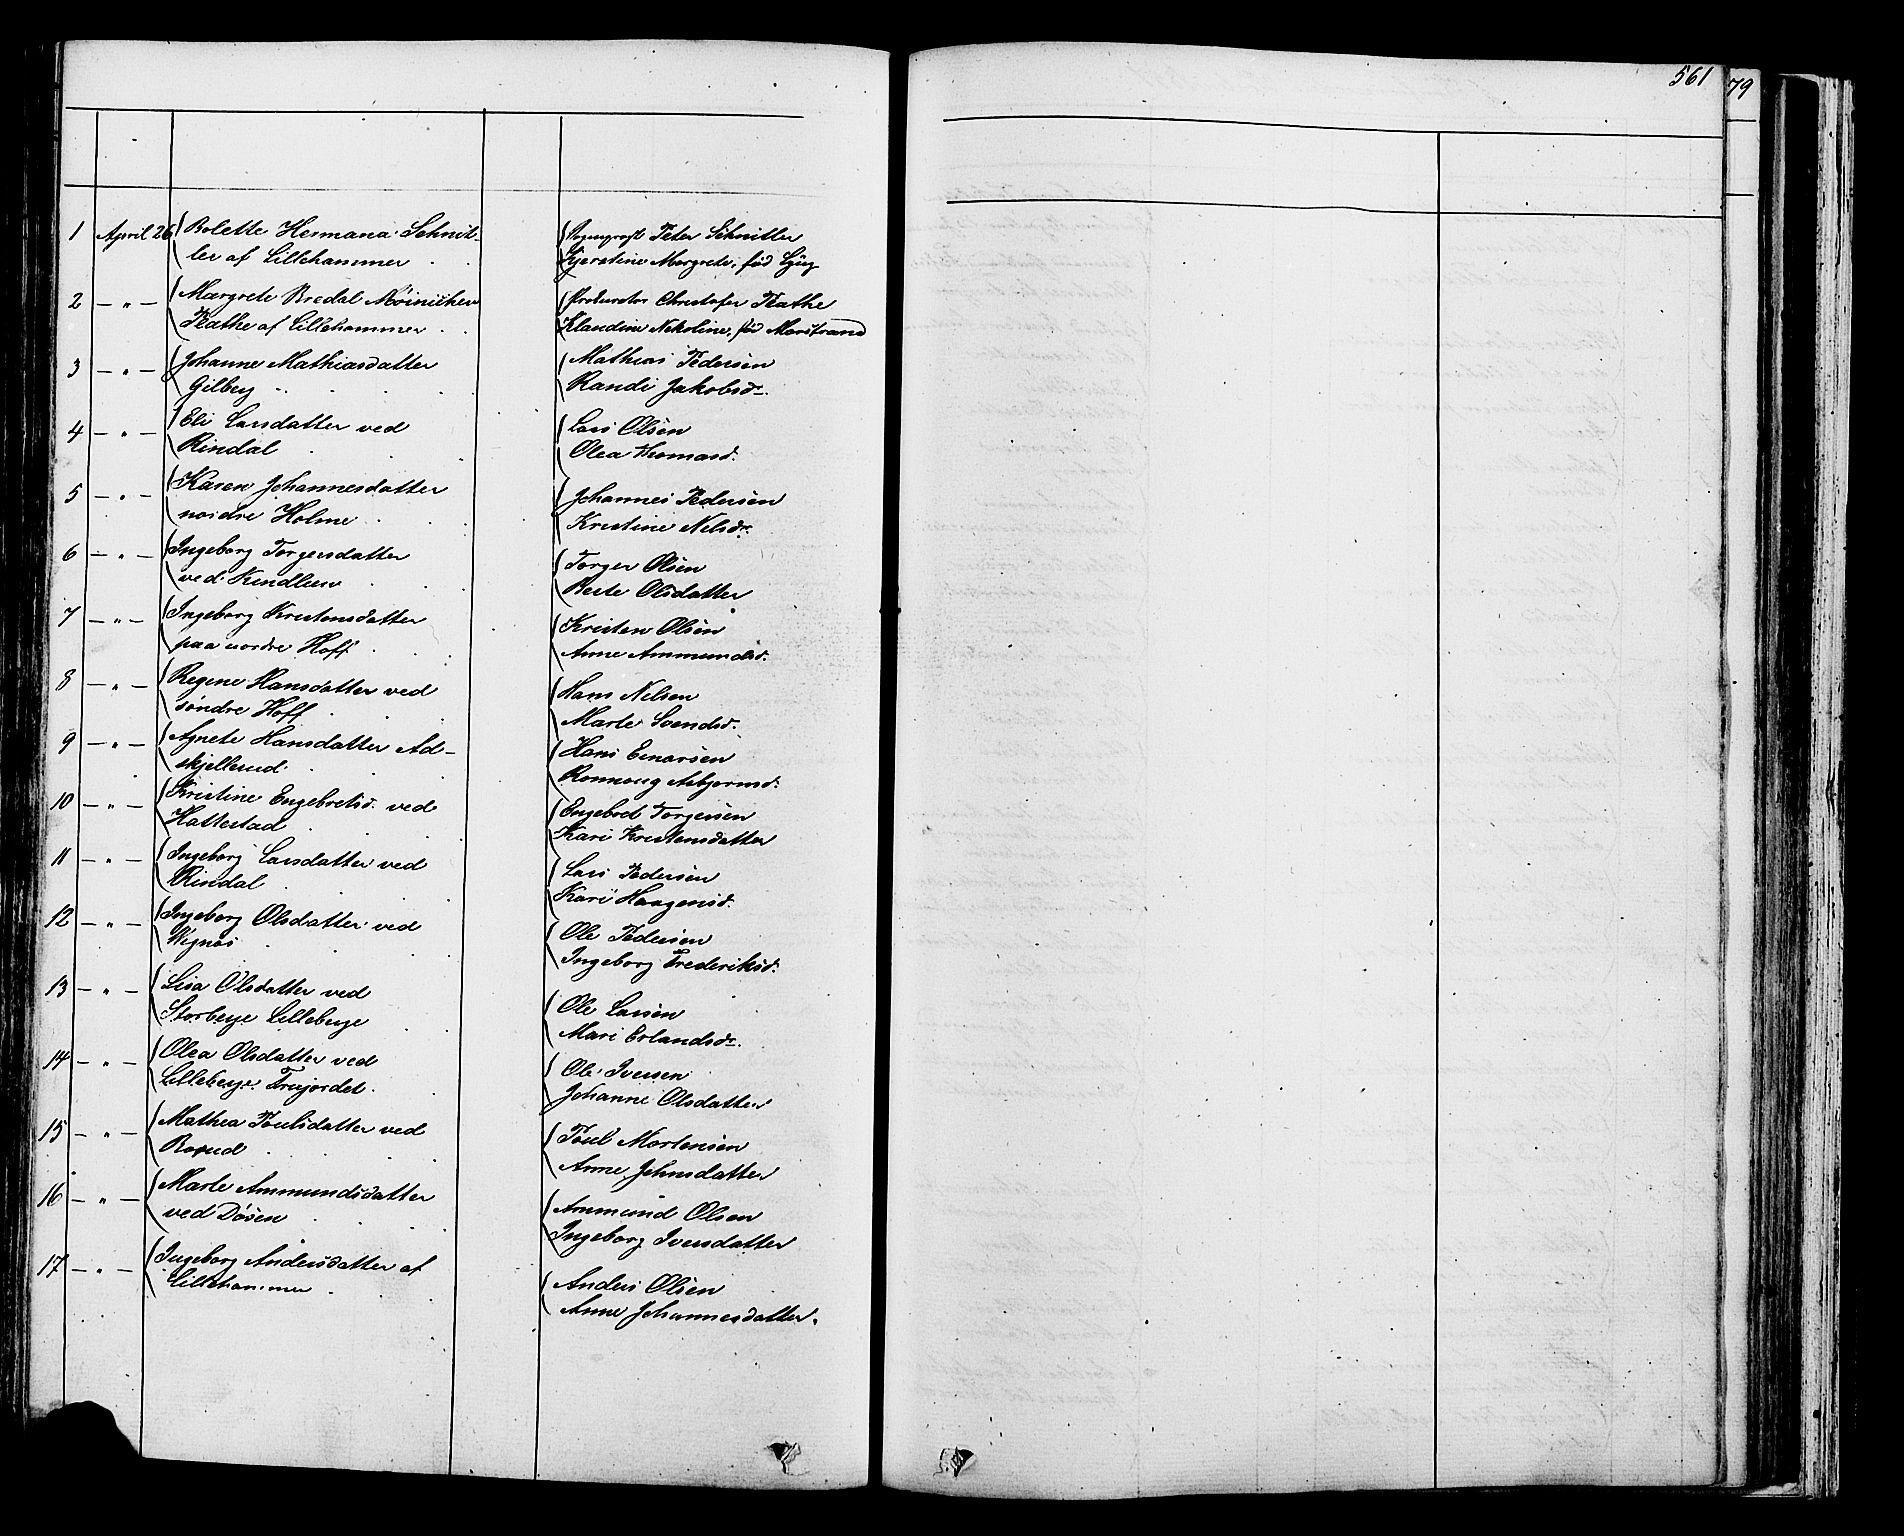 561
79
1 April 26 Bolette Hermana Schnit-
ler af Lillehammer
Peter Schnitler
Kjerstine Margrete, fød
2 — " — Margrete Bredal
Rathe af Lillehammer
Prokurator Christofer Rathe
Klaudine Nikoline, fød Marstrand
3 — " — Johanne Mathiasdatter
Gilberg
Mathias Pedersen
Randi Jakobsdr.
4 — " — Eli Larsdatter ved
Rindal
Lars Olsen
Olea Thomasd.
5 — " — Karen Johannesdatter
nordre Holme
Johannes Pedersen
Kristine Nelsdr.
6 — " — Ingeborg Torgersdatter
ved Kindlien
Torger Olsen
Berte Olsdatter
7 — " — Ingeborg Kristensdatter
paa nordre Hoff
Kristen Olsen
Anne Ammundsd.
8 — " — Regine Hansdatter ved
søndre Hoff
Hans Nelsen
Marte Svendsd.
9 — " — Agnete Hansdatter Ad-
skjellerud
Hans Einarsen
Ronnoug Asbjørnsd.
10 — " — Kristine Engebretsd. ved
Hattestad
Engebret Torgersen
Kari Kristensdatter
11 — " — Ingeborg Larsdatter ved
Rindal
Lars Pedersen
Kari Haagensd.
12 — " — Ingeborg Olsdatter ved
Vignæs
Ole Pedersen
Ingeborg Frederiksd.
13 — " — Lisa Olsdatter ved
Storberge Lilleberge
Ole Larsen
Mari Erlandsdr.
14 — " — Olea Olsdatter ved
Lilleberge
Ole Iversen
Johanne Olsdatter
15 — " — Mathea Poulsdatter ved
Rorud
Poul Mortensen
Anne Johnsdatter
16 — " — Marte Ammundsdatter
ved Døsen
Ammund Olsen
Ingeborg Iversdatter
17 — " — Ingeborg Andersdatter af
Lillehammer
Anders Olsen
Anne Johannesdatter.